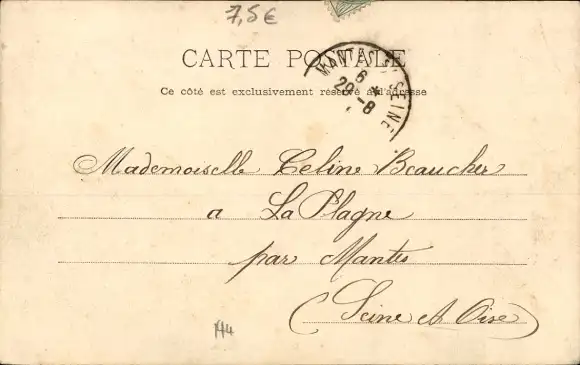 7,5€
CARTE POSTALE
MANTES S/ SEINE
6 *
29 -8
Ce côté est exclusivement réservé à l'adresse
Mademoiselle Celine Beaucher
a La Plagne
par Mantes
(Seine et Oise)